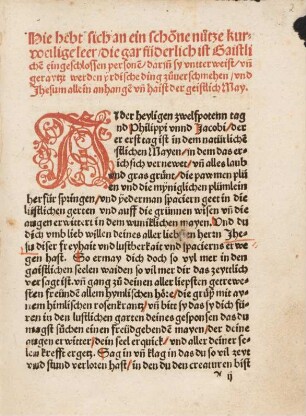 Hie hebt sich an ein schöne nütze kur⸗
weilige leer / die gar fūderlich ist Gaistli
chē eingeschlossen personē / darin̄ sy vntterweist / vn̄
geraytzt werden yrdische ding zůuerschmehen / vnd
Jhesum allein anhangē vn̄ haist der geistlich May.
An der heyligen zwelfpotenn tag
nd Philippi vnnd Jacobi / der
er erst tag ist in dem natürlichē
stlichen Mayen / in dem das er⸗
ich sich vernewet / vn̄ alles laub
vnd gras grünt / die pawmen plü
en vnd die mynigklichen plümlein
herfür springen / vnd yederman spaciern geet in die
lustlichen gertten vnd auff die grünnen wisen vn̄ die
augen erwittert in dem wuniklichen mayen. Vnnd du
dich vmb lieb willen deines aller liebsten herrn Jhe⸗
su diser freyhait vnd lustberkait vnd spacierns er we
gen hast. So ermay dich doch so vyl mer in den
gaistlichen seelen waiden so vil mer dir das zeyttlich
versagt ist vn̄ gang zu deinen einigen liepsten getrewe⸗
sten freündē allem hymlischen höre / die grüß mit ay⸗
nem hymlischen rosenkrantz / vn̄ bitt sy das sy dich fü⸗
ren in den lustlichen garten deines gesponsen das du
mugst süchen einen freüdgebendē mayen / der deine
augen erwitter / dein seel erquick / vnd aller deiner se⸗
len krefft ergetz. Sag in vn̄ klag in das du so vil zeyt
vnd stund verloren hast / in den du den creaturen bist
ij